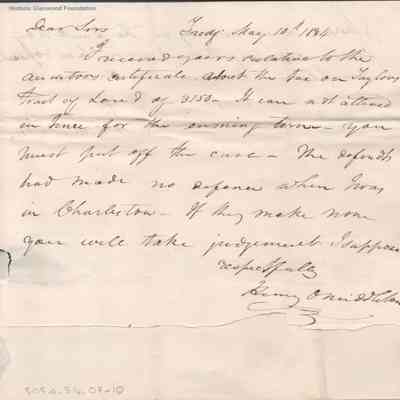 Historic Glenwood Foundation
Dear Sirs Fredg. May 10th 184
I received yours relative to the
auditors certificate about the tax on Taylors
tract of Land of 3150 - It can not attend
in time for the ensuing term - you
must put off the case - The defendts
had made no defence when I was
in Charleston - If they make none
you will take judgement I suppose
respectfully
Henry O Middleton